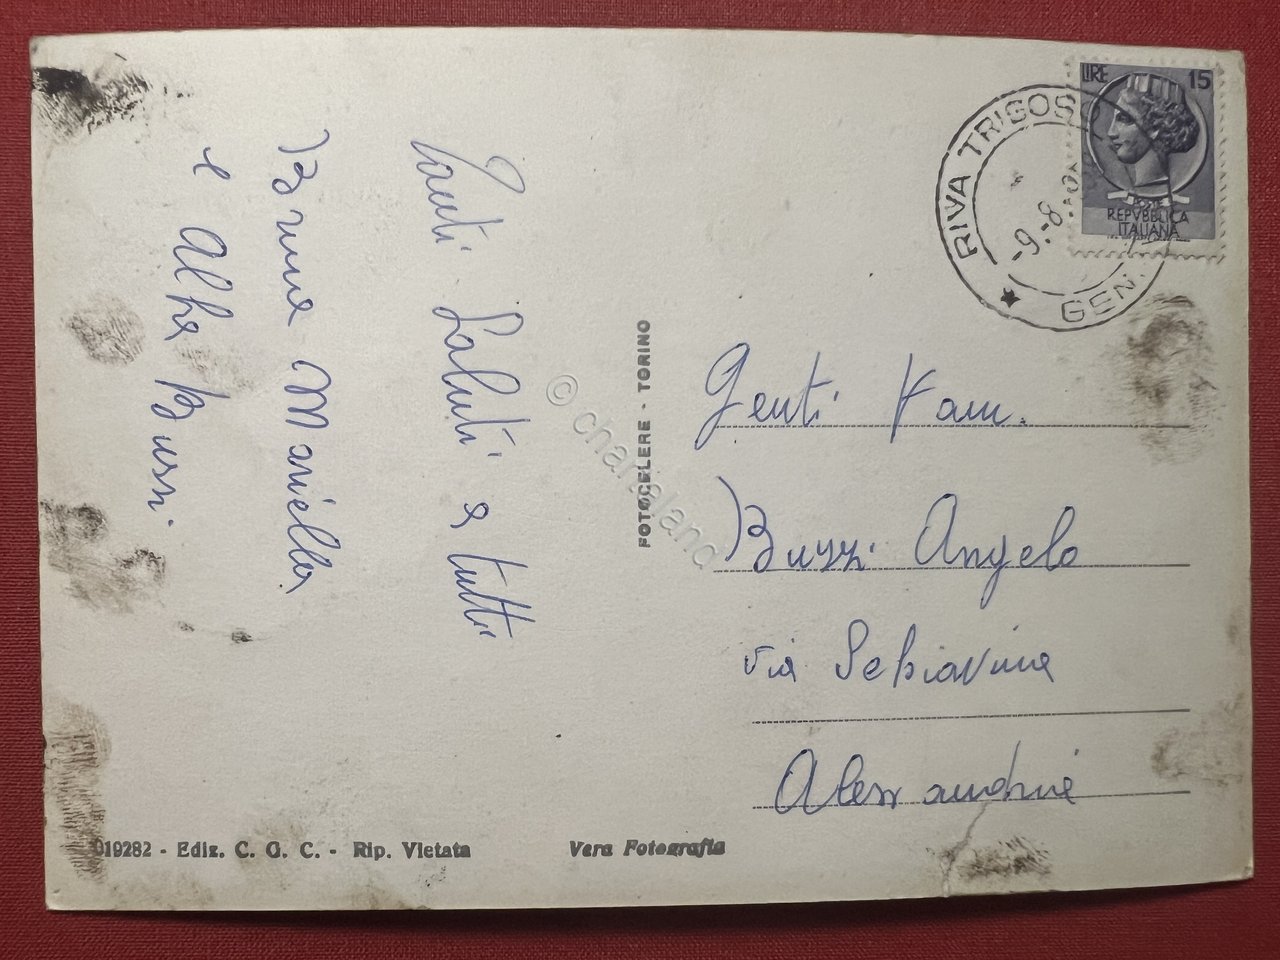 Tanti Saluti a tutti
Bruna Mariella
e Alba Bussi
FOTOCELERE - TORINO
LIRE 15
POSTE
REPVBBLICA
ITALIANA
RIVA TRIGOSO
-9.-8.
GEN.
Genti Fam.
Buzzi Angelo
via Schiavina
Alessandria
019282 - Ediz. C. G. C. - Rip. Vietata
Vera Fotografia
© chartaland